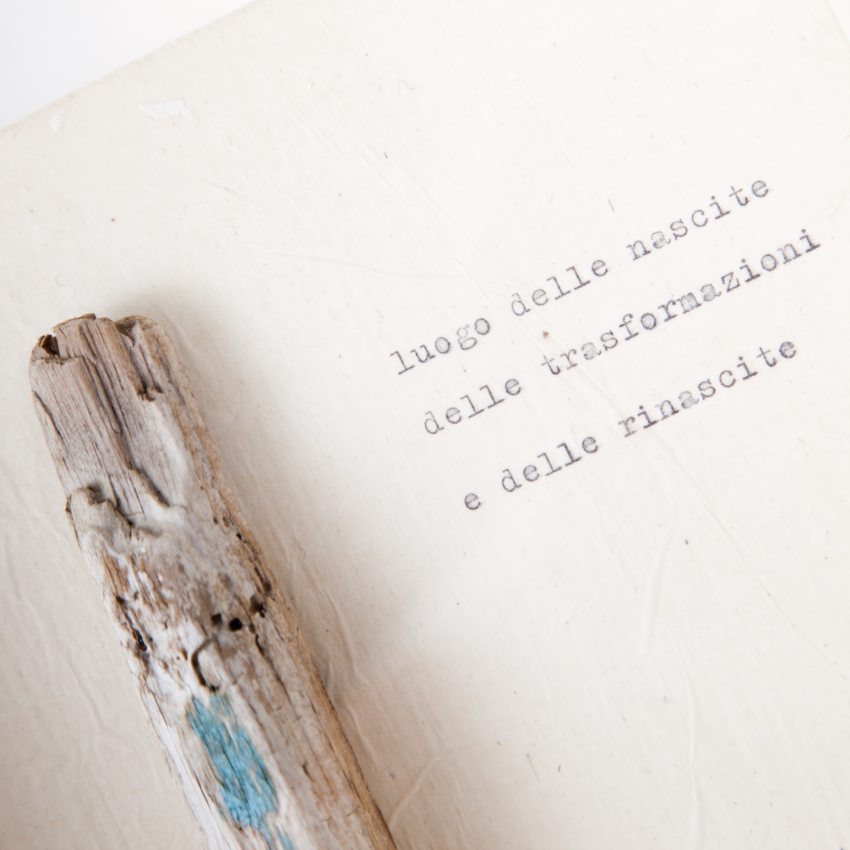 luogo delle nascite
delle trasformazioni
e delle rinascite